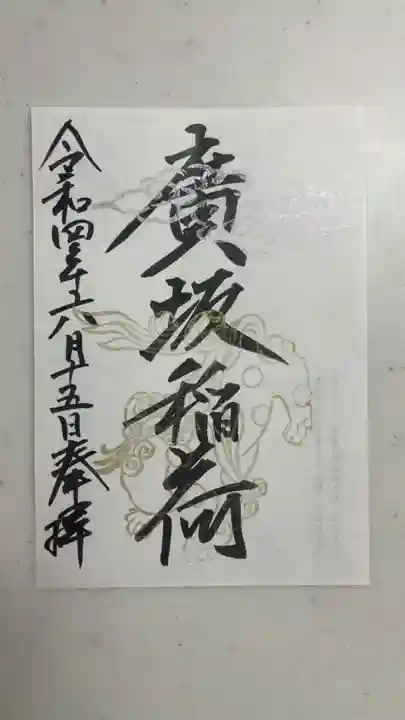 廣坂稲荷
令和四年八月十五日奉拝